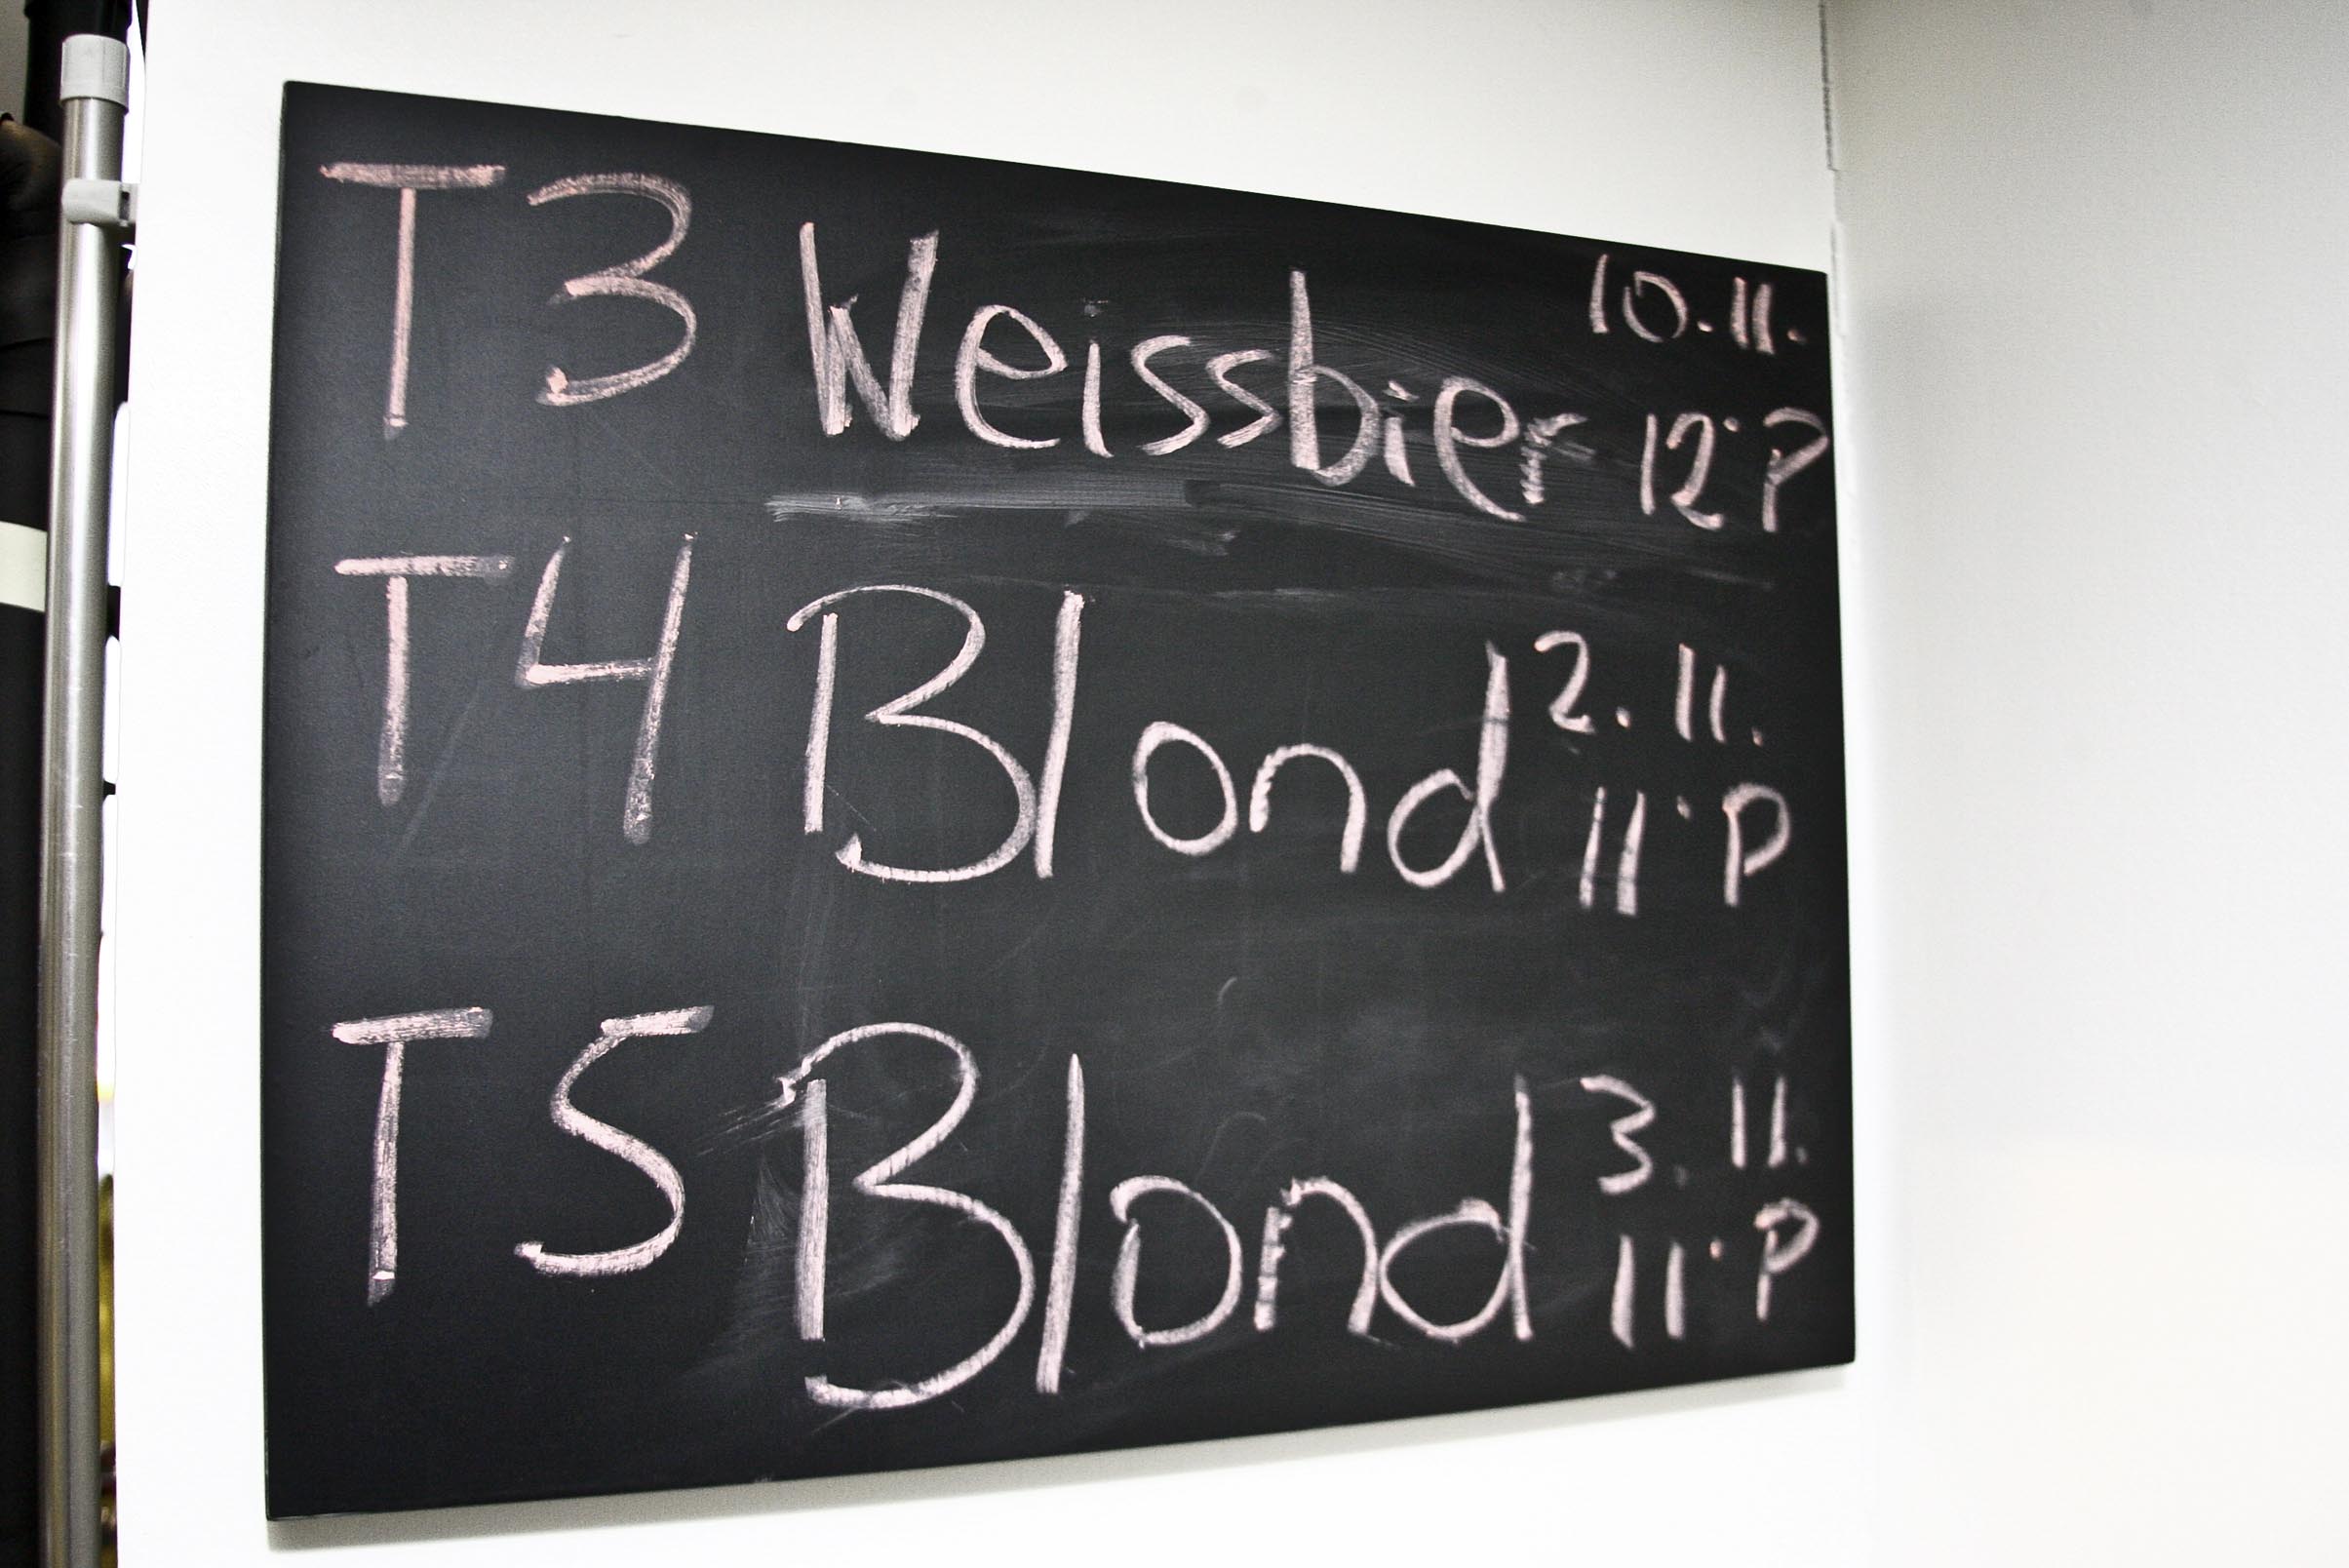 T3 Weissbier 10.11.
12°P
T4 Blond 2.11.
11°P
T5 Blond 3.11.
11°P